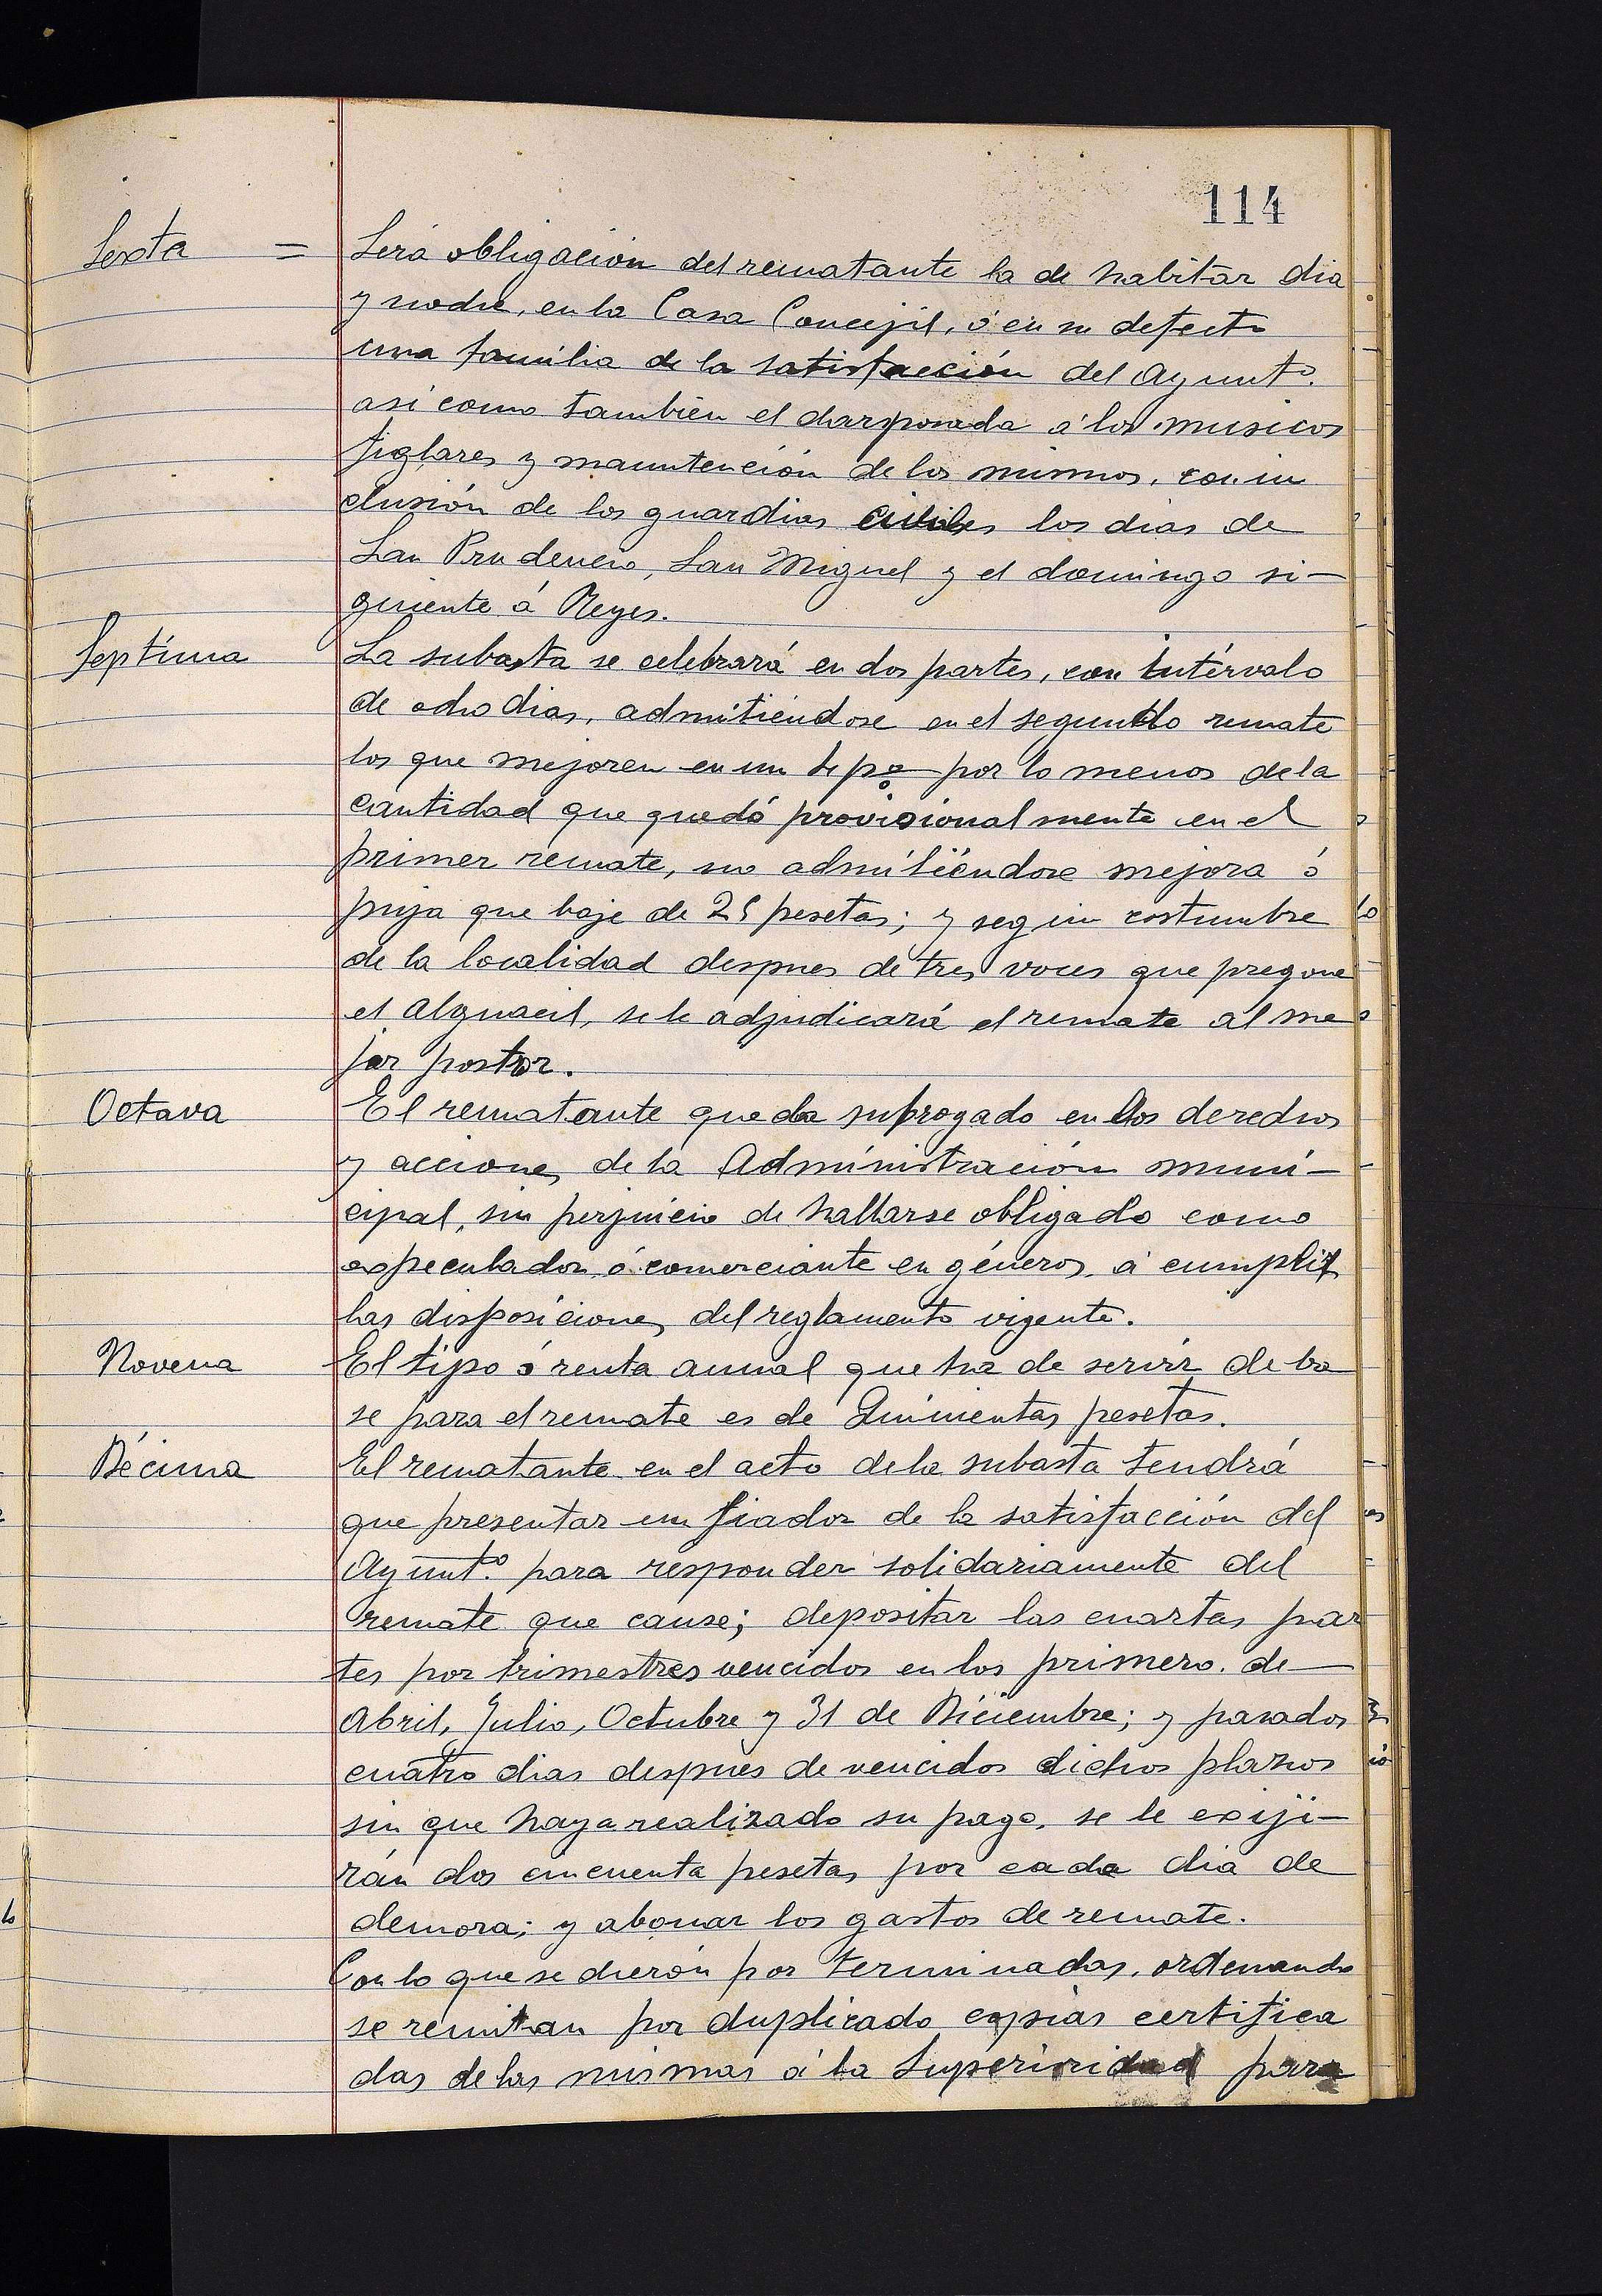 114
Sexta = Será obligación del rematante la de habitar dia
y noche, en la Casa Concejil, ó en su defecto
una familia de la satisfacción del Ayuntº.
así como también el dar posada á los músicos
juglares y manutención de los mismos, con in
clusión de los guardias civiles los dias de
San Prudencio, San Miguel y el domingo si-
guiente á Reyes.
Septima La subasta se celebrará en dos partes, con intérvalo
de ocho dias, admitiéndose en el segundo remate
los que mejoren en un por lo menos de la
cantidad que quedó provisionalmente en el
primer remate, no admitiéndose mejora ó
puja que baje de 25 pesetas; y segun costumbre
de la localidad despues de tres voces que pregone
el Alguacil, se le adjudicará el remate al me
jor postor.
Octava El rematante queda subrogado en los derechos
y acciones de la Administración muni-
cipal, sin perjuicio de hallarse obligado como
especulador ó comerciante en géneros, á cumplir
las disposiciones del reglamento vigente.
Novena El tipo ó renta anual que ha de servir de ba
se para el remate es de Quinientas pesetas.
Décima El rematante en el acto de la subasta tendrá
que presentar un fiador de la satisfacción del
Ayuntº. para responder solidariamente del
remate que cause; depositar las cuartas par
tes por trimestres vencidos en los primero. de
Abril, Julio, Octubre y 31 de Diciembre; y pasados
cuatro dias despues de vencidos dichos plazos
sin que haya realizado su pago, se le exiji-
rán dos cincuenta pesetas por cada dia de
demora; y abonar los gastos de remate.
Con lo que se dieron por terminadas, ordenando
se remitan por duplicado copias certifica
das de las mismas á la Superioridad para